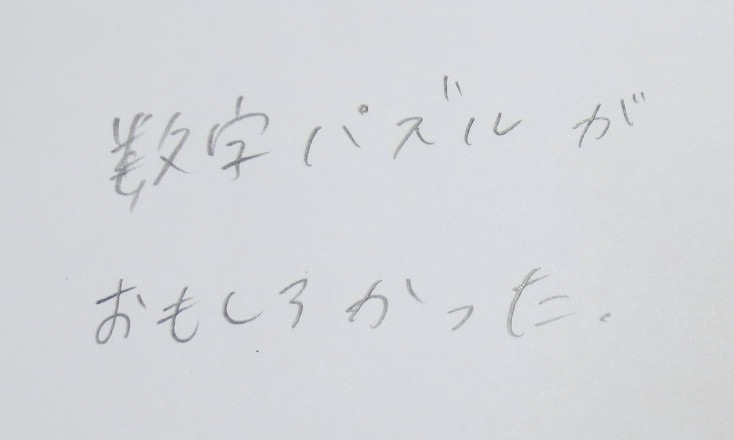 数字パズルが
おもしろかった.